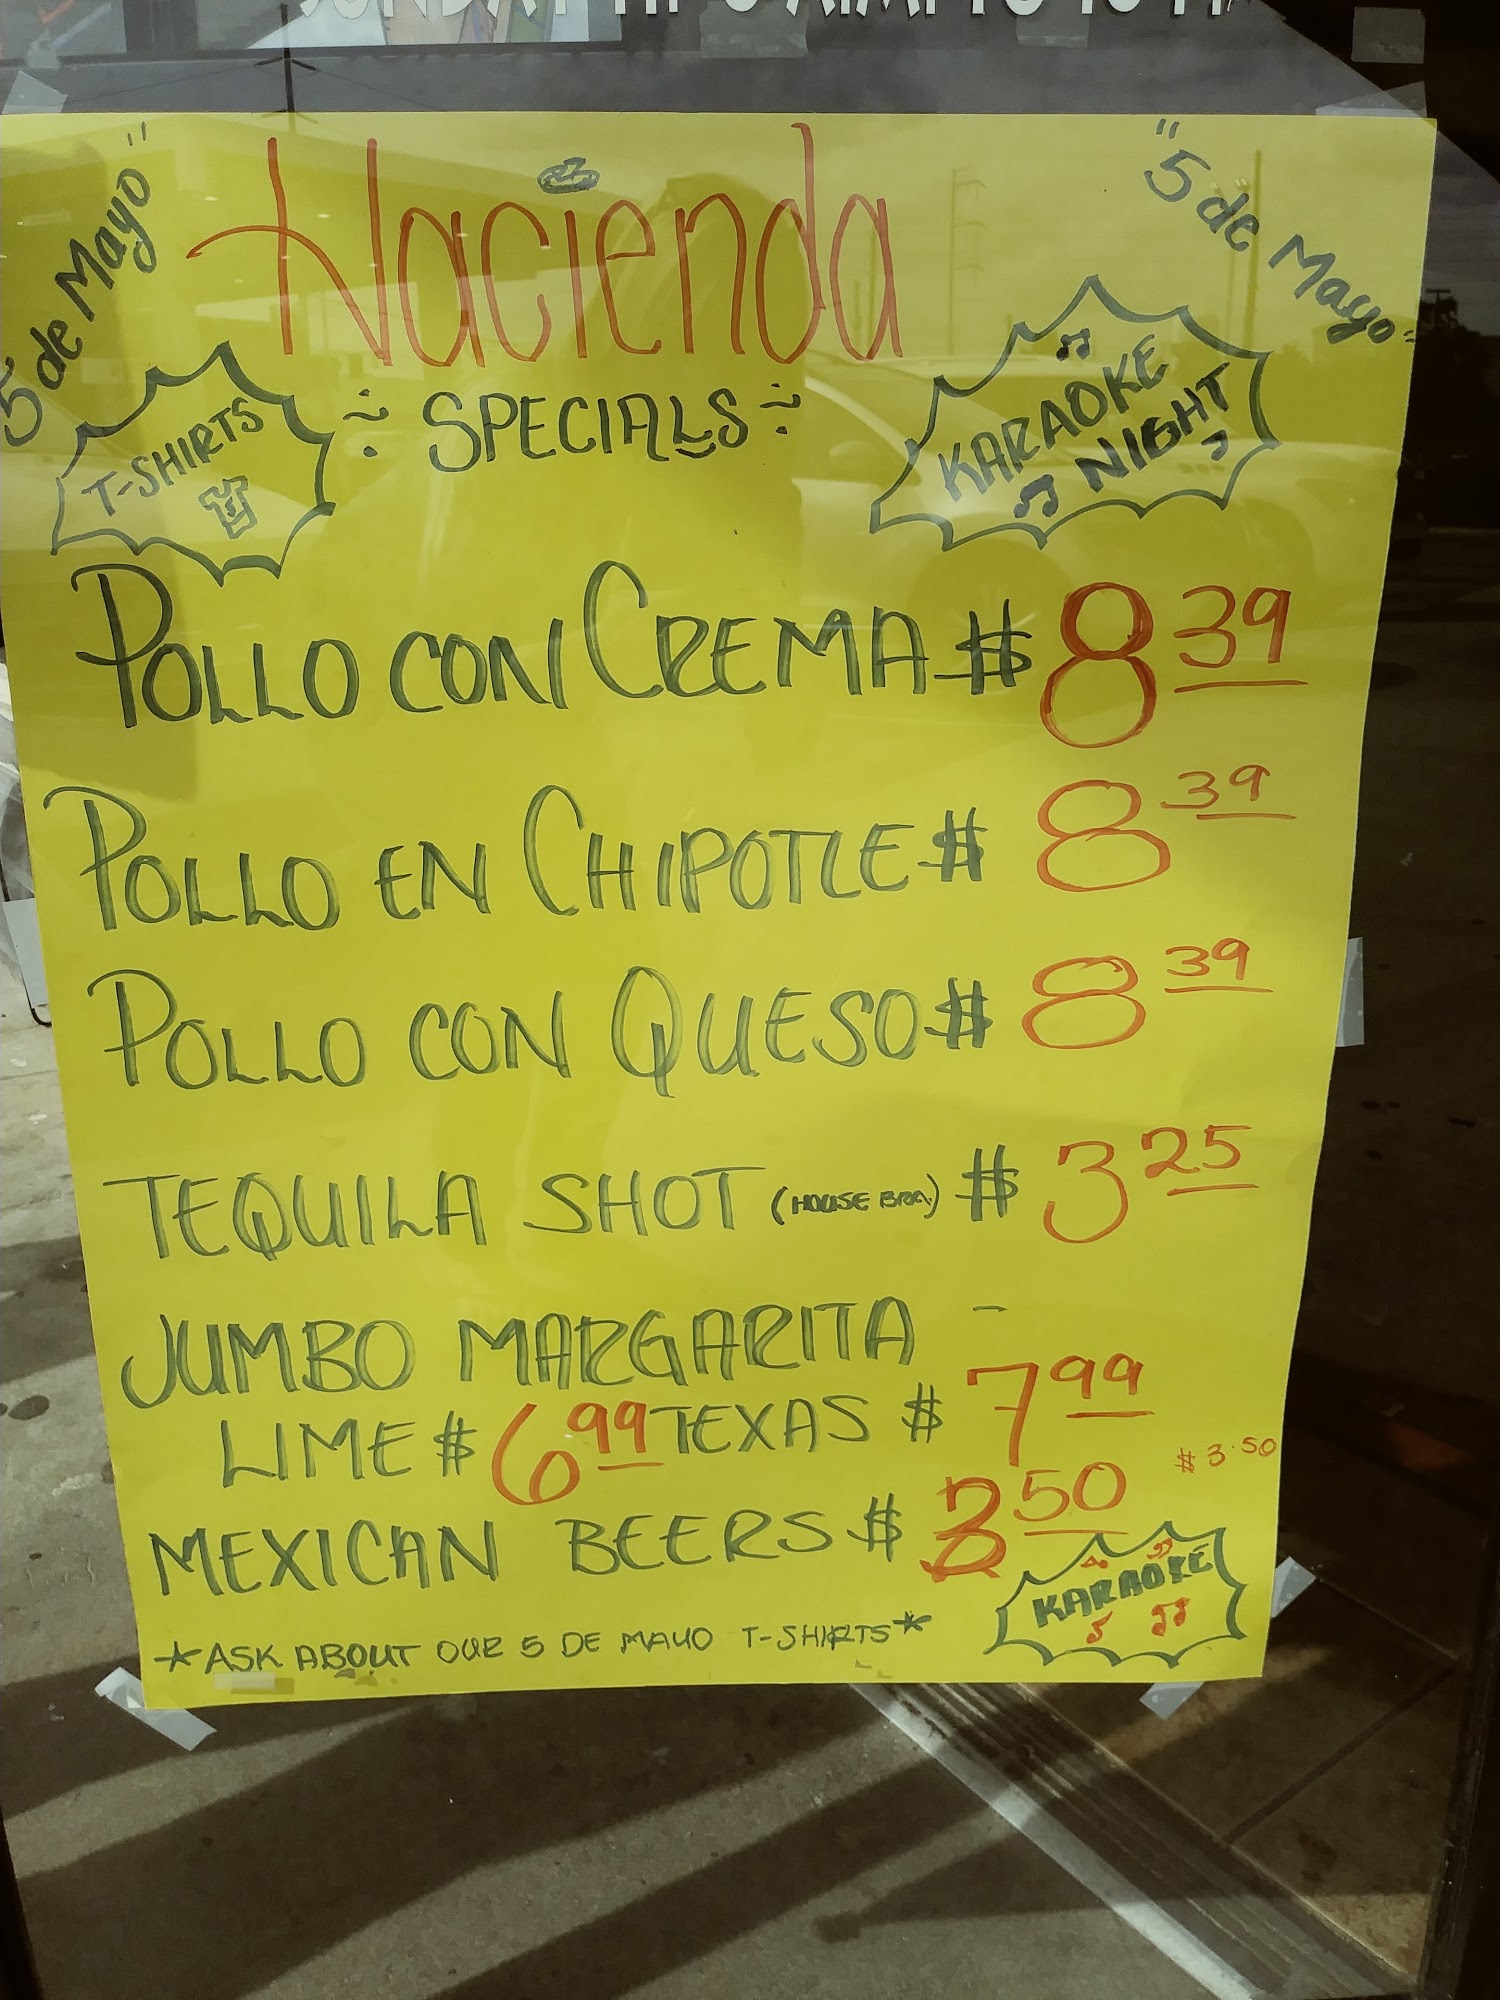 "5 de Mayo"
Hacienda
"5 de Mayo"
T-SHIRTS
SPECIALS
KARAOKE
NIGHT
POLLO CON CREMA $8 39
POLLO EN CHIPOTLE $8 39
POLLO CON QUESO $8 39
TEQUILA SHOT (HOUSE BRA.) $3 25
JUMBO MARGARITA -
LIME $6 99 TEXAS $7 99
$3.50
MEXICAN BEERS $3 50
KARAOKE
*ASK ABOUT OUR 5 DE MAYO T-SHIRTS*